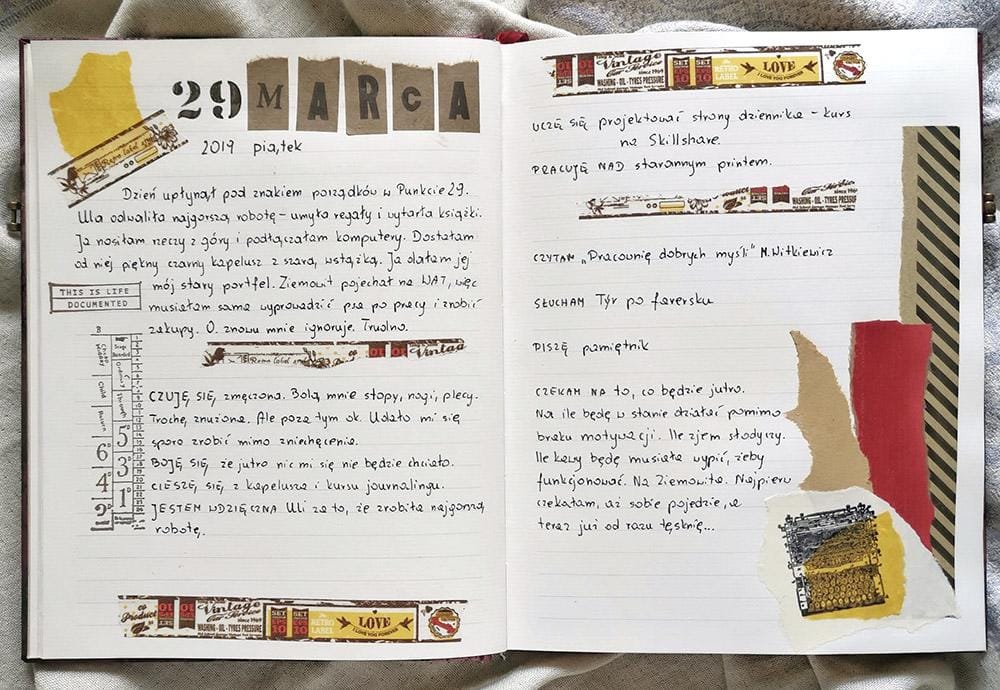 29 MARCA
2019 piątek
Dzień upłynął pod znakiem porządków w Punkcie 29.
Ula odwaliła najgorszą robotę – umyła regały i wytarła książki.
Ja nosiłam rzeczy z góry i podłączałam komputery. Dostałam
od niej piękny czarny kapelusz z szarą wstążką. Ja dałam jej
mój stary portfel. Ziemowit pojechał na WAT, więc
musiałam sama wyprowadzić psa po pracy i zrobić
zakupy. O. znowu mnie ignoruje. Trudno.
THIS IS LIFE
DOCUMENTED
Retro label
Vintage
CZUJĘ SIĘ zmęczona. Bolą mnie stopy, nogi, plecy.
Trochę znużona. Ale poza tym ok. Udało mi się
sporo zrobić mimo zniechęcenia.
BOJĘ SIĘ, że jutro nic mi się nie będzie chciało.
CIESZĘ SIĘ z kapelusza i kursu journalingu.
JESTEM WDZIĘCZNA Uli za to, że zrobiła najgorszą
robotę.
B
Child
6
5
4
3
2
1
Product
Vintage
Car Service
since 1969
WASHING - OIL - TYRES PRESSURE
SET
EPS
10
RETRO
LABEL
LOVE
I LOVE YOU FOREVER
Vintage
Car Service
since 1969
WASHING - OIL - TYRES PRESSURE
SET
EPS
10
RETRO
LABEL
LOVE
I LOVE YOU FOREVER
UCZĘ SIĘ projektować strony dziennika – kurs
na Skillshare.
PRACUJĘ NAD starannym printem.
Car Service
WASHING - OIL - TYRES PRESSURE
CZYTAM „Pracownię dobrych myśli" M. Witkiewicz
SŁUCHAM Týr po farersku
PISZĘ pamiętnik
CZEKAM NA to, co będzie jutro.
Na ile będę w stanie działać pomimo
braku motywacji. Ile zjem słodyczy.
Ile kawy będę musiała wypić, żeby
funkcjonować. Na Ziemowita. Najpierw
czekałam, aż sobie pojedzie, a
teraz już od razu tęsknię...